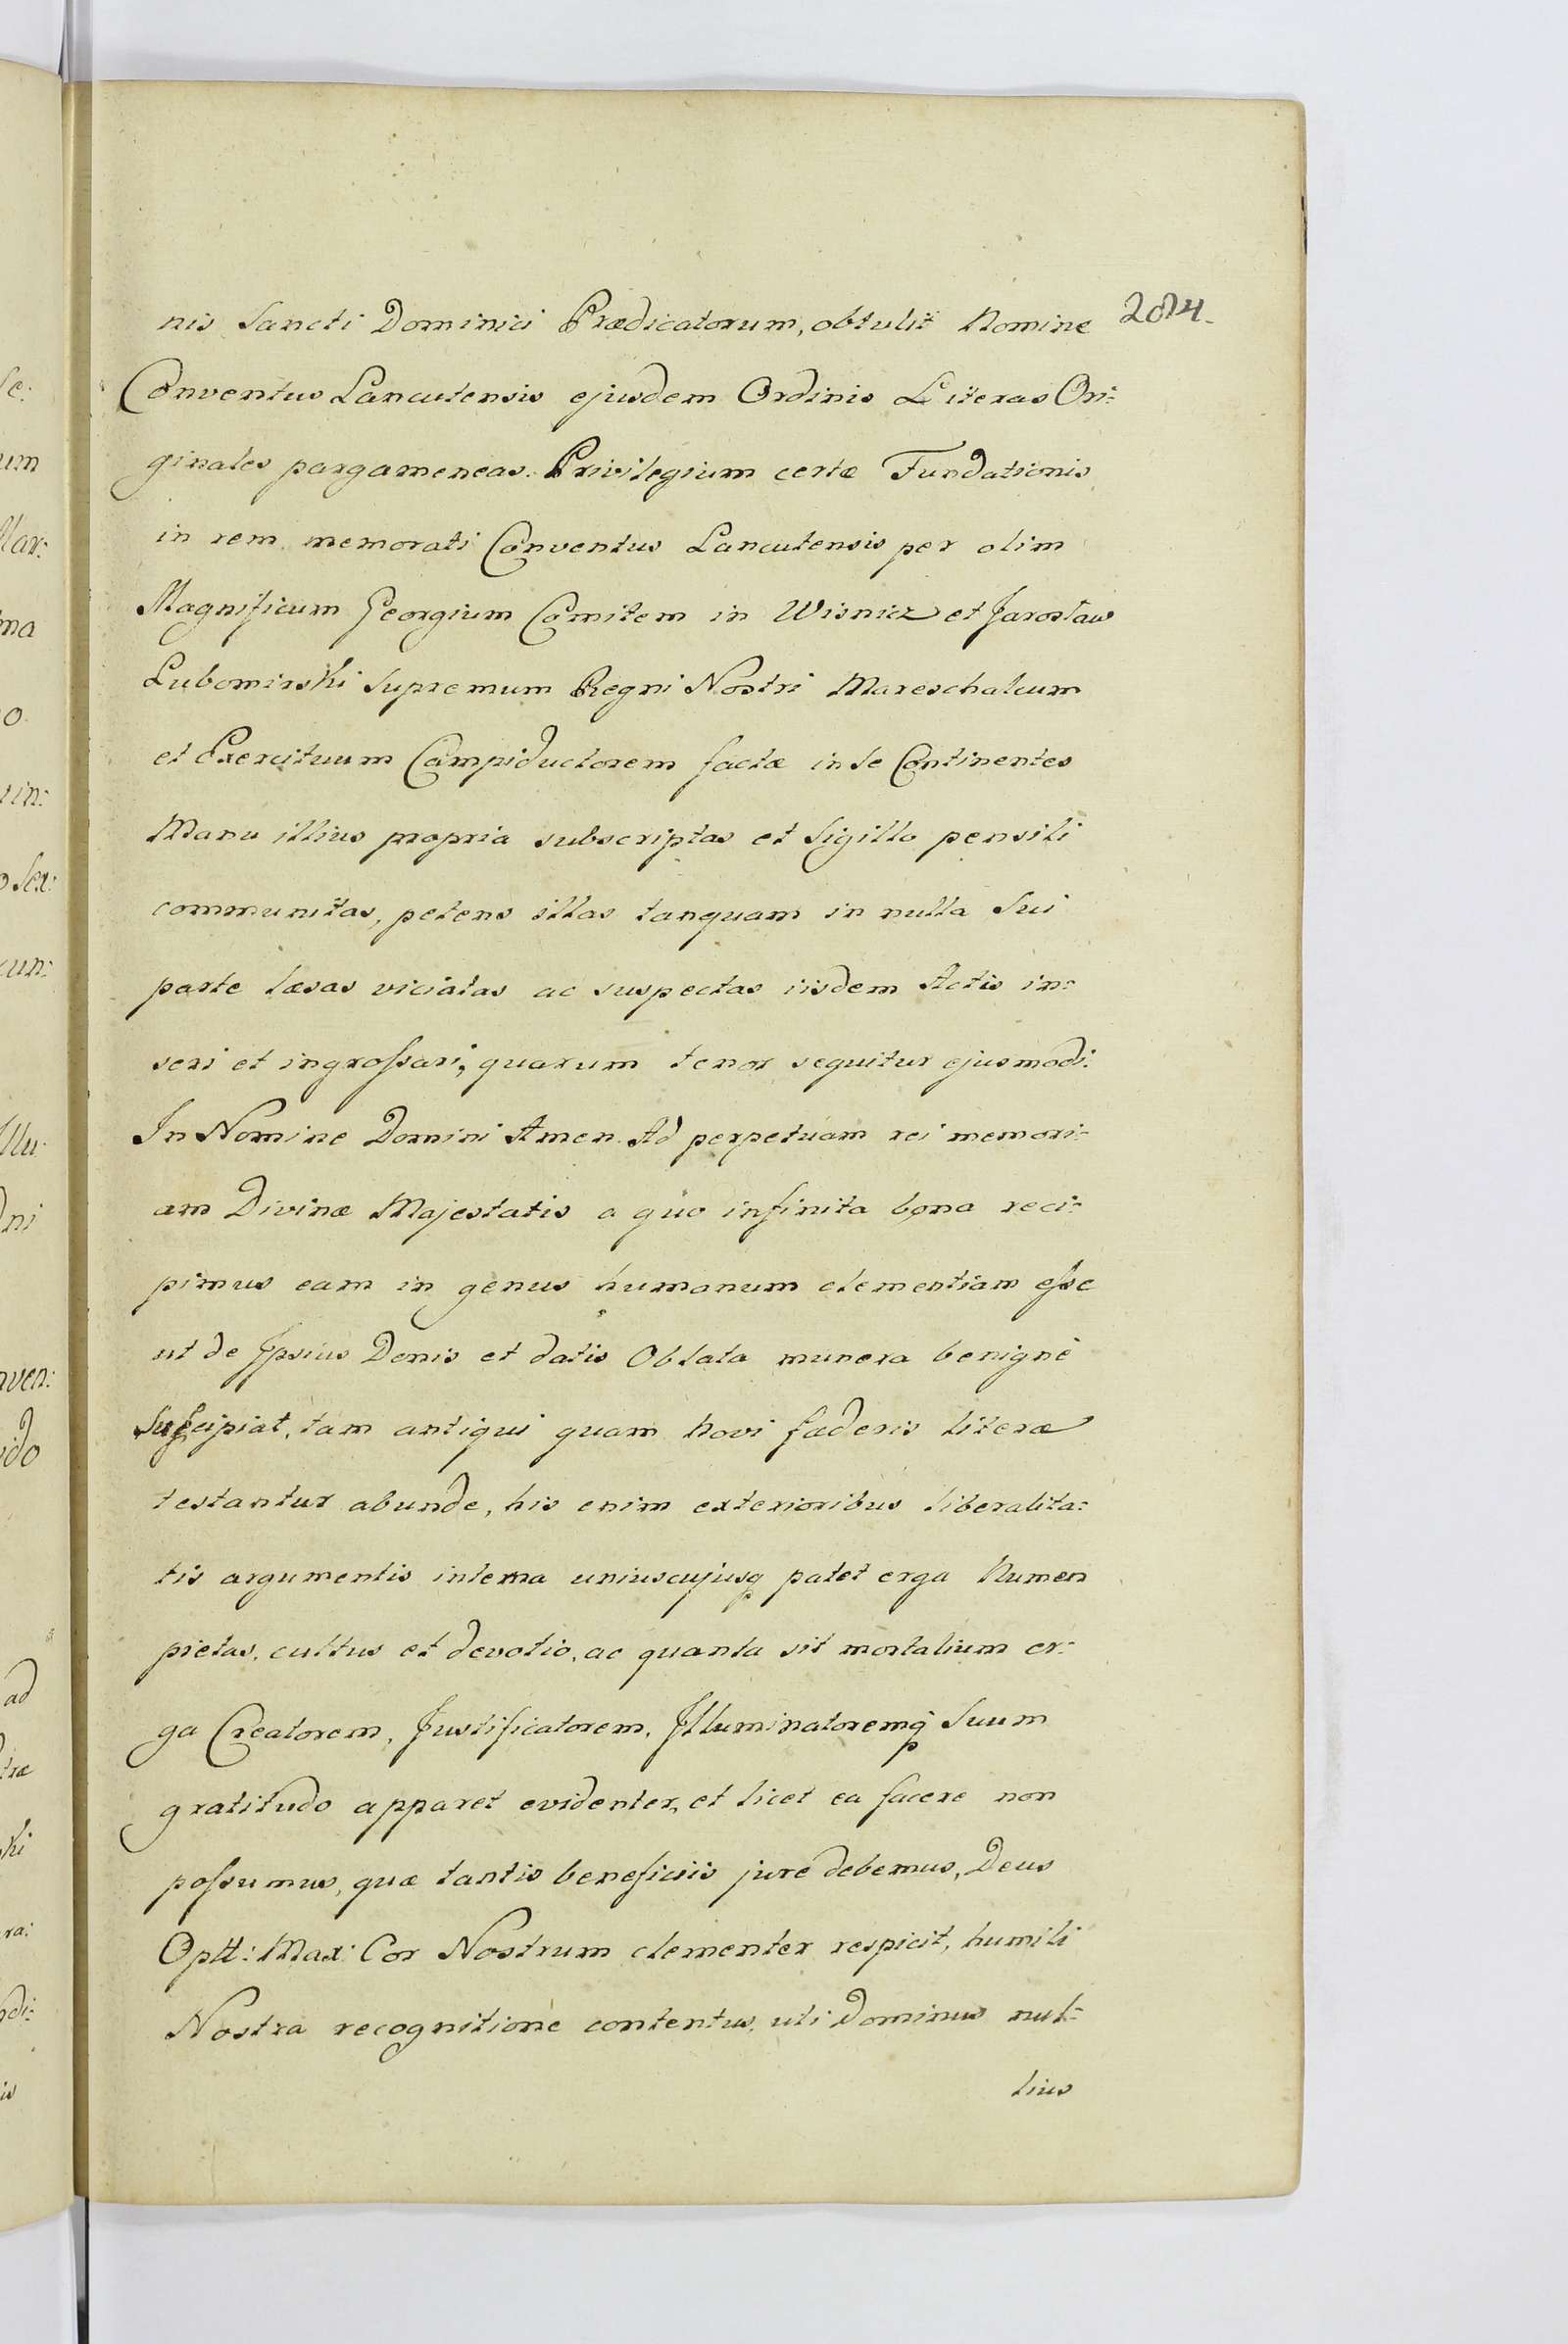 nis Sancti Dominici Prædicatorum, obtulit Nomine
Conventus Lancutensis ejusdem Ordinis Literas Ori=
ginales pargameneas. Privilegium certæ Fundationis
in rem memorati Conventus Lancutensis per olim
Magnificum Georgium Comitem in Wisnicz et Jarosław
Lubomirski Supremum Regni Nostri Mareschalcum
et Exercituum Campiductorem factæ in se Continentes
Manu illius propria subscriptas et Sigillo pensili
communitas, petens illas tanquam in nulla Sui
parte læsas viciatas ac suspectas iisdem Actis in=
seri et ingrossari, quarum tenor sequitur ejusmodi:
In Nomine Domini Amen. Ad perpetuam rei memori=
am Divinæ Majestatis a quo infinita bona reci=
pimus eam in genus humanum clementiam esse
ut de Ipsius Donis et datis Oblata munera benignè
Suscipiat, tam antiqui quam Novi fæderis literæ
testantur abunde, his enim exterioribus liberalita=
tis argumentis interna uniuscujusq patet erga Numen
pietas, cultus et devotio, ac quanta sit mortalium er=
ga Creatorem, Justificatorem, Illuminatoremq Suum
gratitudo apparet evidenter, et licet ea facere non
possumus, quæ tantis beneficiis jure debemus, Deus
Optt: Max: Cor Nostrum clementer respicit, humili
Nostra recognitione contentus, uti Dominus nul=
lius